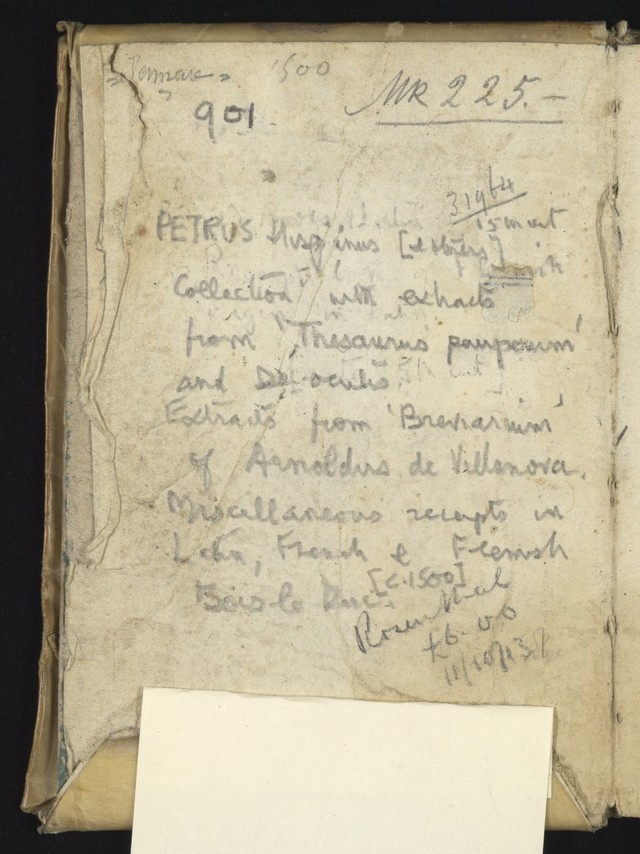 1500
MR 225.-
901.
31964
PETRUS Hispanus [& others]
Collection with extracts
from 'Thesaurus pauperum'
and De oculis.
Extracts from 'Breviarium'
of Arnoldus de Villanova.
Miscellaneous receipts in
Latin, French & Flemish
[c.1500]
Bois-le Duc.
Rosenthal
£6.00
11/10/13